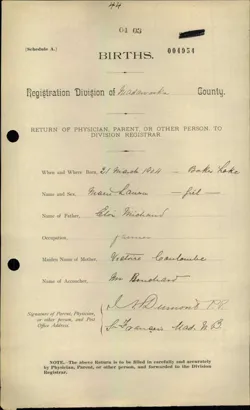 44
01 05
(Schedule A.) 004954
BIRTHS.
Registration Division of Madawaska County.
RETURN OF PHYSICIAN, PARENT, OR OTHER PERSON, TO
DIVISION REGISTRAR.
When and Where Born, 21 March 1904 Baker Lake
Name and Sex, Marie girl
Name of Father, Michaud
Occupation, farmer
Maiden Name of Mother,
Name of Accoucheur, Bouchard
Signatures of Parent, Physician,
or other person, and Post
Office Address. Dumont
St Francis Mad. N B
NOTE.—The above Return is to be filled in carefully and accurately
by Physician, Parent, or other person, and forwarded to the Division
Registrar.